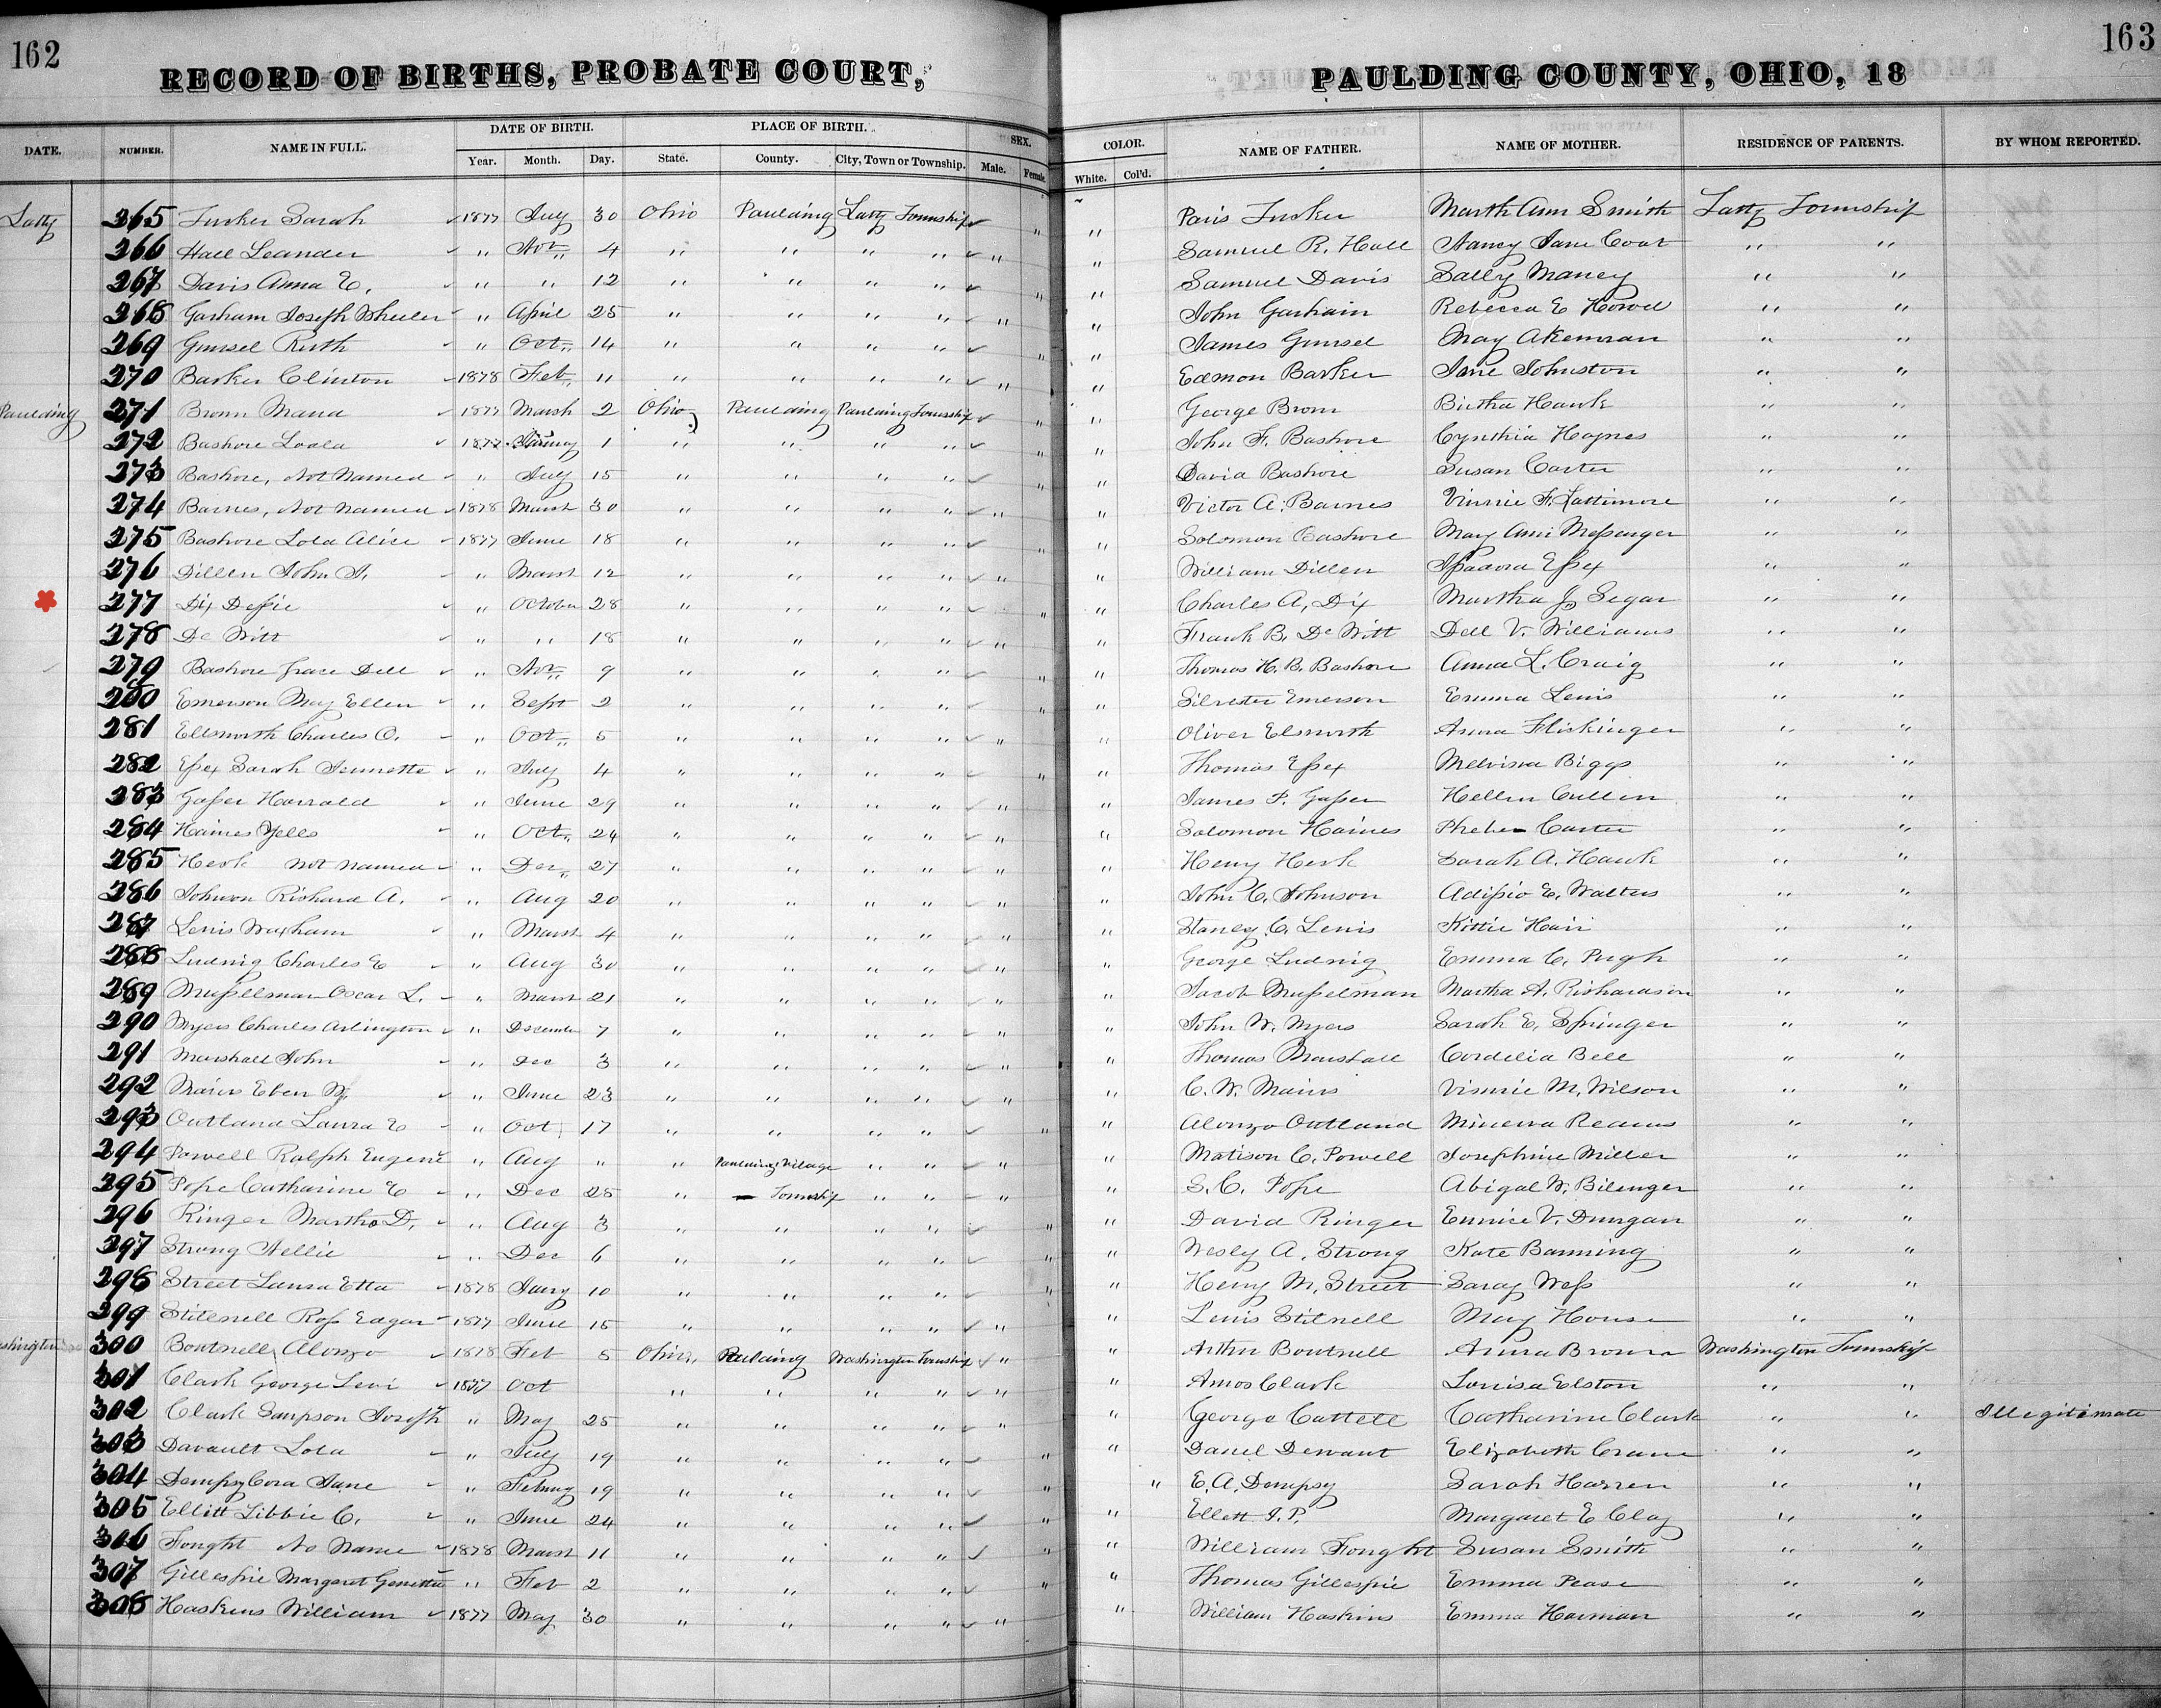 162
163
RECORD OF BIRTHS, PROBATE COURT, PAULDING COUNTY, OHIO, 18
DATE. NUMBER. NAME IN FULL. DATE OF BIRTH. PLACE OF BIRTH. SEX. COLOR. NAME OF FATHER. NAME OF MOTHER. RESIDENCE OF PARENTS. BY WHOM REPORTED.
Year. Month. Day. State. County. City, Town or Township. Male. Female. White. Col'd.
Latty 265 Tucker Sarah 1877 July 30 Ohio Paulding Latty Township " " Paris Tucker Marth Ann Smith Latty Township
266 Hall Leander " Nov 4 " " " " " " Samuel R. Hall Nancy Jane Coat " "
267 Davis Anna E. " " 12 " " " " " " Samuel Davis Sally Maney " "
268 Garham Joseph Wheeler " April 25 " " " " " " John Garhain Rebecca E " "
269 Gunsel Ruth " Oct 14 " " " " " " James Gunsel May Akeman " "
270 Barker Clinton 1878 Feb 11 " " " " " " Edmon Barker Jane Johnston " "
Paulding 271 Brown Maud 1877 March 2 Ohio Paulding Paulding Township " " George Brown Birtha Hawk " "
272 Bashore Loola 1877 1 " " " " " " John F. Bashore Cynthia Haynes " "
273 Bashore, Not Named " July 15 " " " " " " David Bashore Susan Carter " "
274 Barnes, Not Named 1878 March 30 " " " " " " Victor A. Barnes Vinnie F. Lattimore " "
275 Bashore Lola Alice 1877 June 18 " " " " " " Solomon Bashore May Ann Messenger " "
276 Dillen John A. " March 12 " " " " " " William Dillen Essex " "
277 Dix Dessie " October 28 " " " " " " Charles A. Dix Martha J. Segar " "
278 De Witt " " 18 " " " " " " Frank B. De Witt Dell V. Williams " "
279 Bashore Grace Dell " Nov 9 " " " " " " Thomas H. B. Bashore Anna L. Craig " "
280 Emerson May Ellen " Sept 2 " " " " " " Silvester Emerson Emma Lewis " "
281 Ellsworth Charles O. " Oct 5 " " " " " " Oliver Elsworth Anna Flickinger " "
282 Essex Sarah Jennette " July 4 " " " " " " Thomas Essex Melvina Biggs " "
283 Gasser Harrald " June 29 " " " " " " James P. Gasser Hellen Cullen " "
284 Haines Yells " Oct 24 " " " " " " Solomon Haines Phebe Carter " "
285 Heck not named " Dec 27 " " " " " " Henry Heck Sarah A. Hawk " "
286 Johnson Richard A. " Aug 20 " " " " " " John C. Johnson E. Walters " "
287 Lewis " March 4 " " " " " " Staney C. Lewis Kittie Hair " "
288 Ludwig Charles E " Aug 30 " " " " " " George Ludwig Emma C. Pugh " "
289 Musselman Oscar L. " March 21 " " " " " " Jacob Musselman Martha A. Richardson " "
290 Myers Charles Arlington " December 7 " " " " " " John W. Myers Sarah E. Springer " "
291 Marshall John " Dec 3 " " " " " " Thomas Marshall Cordelia Bell " "
292 Mains Eben W. " June 23 " " " " " " C. W. Mains Vinnie M. Wilson " "
293 Outland Laura E " Oct 17 " " " " " " Alonzo Outland Minerva Reams " "
294 Powell Ralph Eugene " Aug " " Paulding Village " " " " Matison C. Powell Josephine Miller " "
295 Pope Catharine E " Dec 25 " Township " " " " S. C. Pope Abigal W. Bilenger " "
296 Ringer Martha D. " Aug 3 " " " " " " David Ringer Eunice V. Dungan " "
297 Strong Nellie " Dec 6 " " " " " " Wesly A. Strong Kate Banning " "
298 Street Laura Etta 1878 Jany 10 " " " " " " Henry M. Street Saray Wess " "
299 Stilsnell Ross Edgar 1877 June 15 " " " " " " Lewis Stilnell May House " "
Washington 300 Boutnell Alonzo 1878 Feb 5 Ohio Paulding Washington Township " " Arthur Boutnell Anna Brown Washington Township
301 Clark George Levi 1877 Oct " " " " " " Amos Clark Louisa Elston " "
302 Clark Sampson Joseph " May 25 " " " " " " George Cattell Catharine Clark " " Illegitimate
303 Davault Lola " July 19 " " " " " " Daniel Devant Elizabeth Crane " "
304 Dempsy Cora Jane " Februay 19 " " " " " " E. A. Dempsy Sarah Harren " "
305 Ellitt Libbie C. " June 24 " " " " " " Ellett J. P. Margaret E Clay " "
306 Fought No Name 1878 March 11 " " " " " " William Fought Susan Smith " "
307 Gillespie Margaret Genettie " Feb 2 " " " " " " Thomas Gillespie Emma Pease " "
308 Haskins William 1877 May 30 " " " " " " William Haskins Emma Harman " "